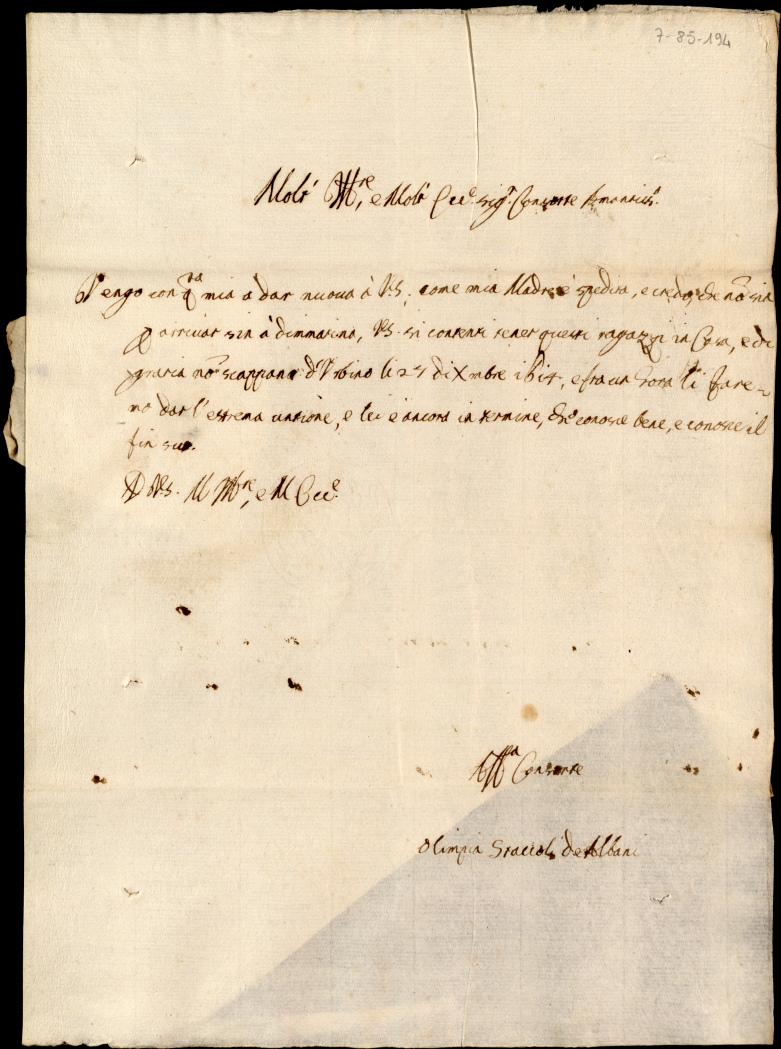 7-85-194
Molt' Ill.re, e Molt' Ecc.e Sig.r Consorte Amantiss.o
Vengo con q.ta mia a dar nuova à V.S. come mia Madre è spedita, e credo, che nō sia
p arrivar sin à dimmatina, V.S. si contenti tener questi ragazzi in Casa, e di
gratia nō scappano d'Urbino li 24 di Xmbre, e fra un hora li fare-
mo dar l'estrema untione, e lei è ancora in termine, che conosce bene, e conosce il
fin suo.
D V.S. M Ill.re, e M Ecc.e
Aff.ma Consorte
Olimpia Staccoli de Albani